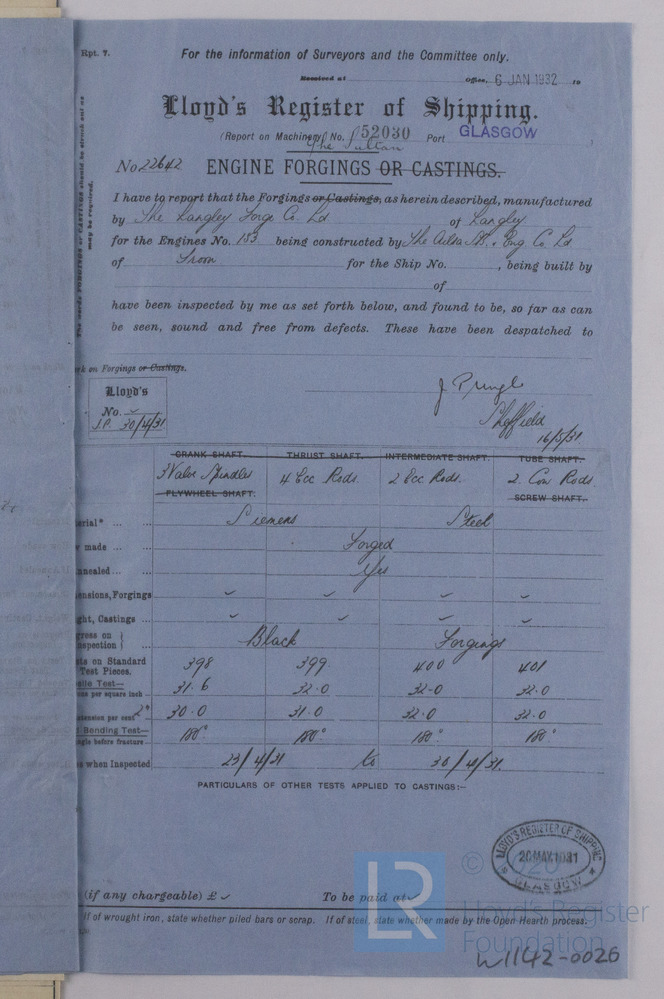 Rpt. 7.
For the information of Surveyors and the Committee only.
Received at Office, 6 JAN 1932 19
Lloyd's Register of Shipping.
(Report on Machinery No. 52030 Port GLASGOW
The Sultan
No 22642 ENGINE FORGINGS OR CASTINGS.
may be required.
I have to report that the Forgings or Castings, as herein described, manufactured
by The Langley Forge Co. Ld of Langley
for the Engines No. 153 being constructed by The Ailsa S. & Eng Co Ld
of Troon for the Ship No. , being built by
of
have been inspected by me as set forth below, and found to be, so far as can
be seen, sound and free from defects. These have been despatched to
rk on Forgings or Castings.
Lloyd's
No.
J.P. 30/4/31
J Pringle
Sheffield
16/5/31
CRANK SHAFT. THRUST SHAFT. INTERMEDIATE SHAFT. TUBE SHAFT.
3 Valve Spindles 4 Ecc Rods. 2 Ecc Rods. 2. Con Rods
FLYWHEEL SHAFT. SCREW SHAFT.
erial* ... Siemens Steel
w made ... Forged
nnealed ... Yes
ensions, Forgings
ght, Castings ...
gress on
nspection Black Forgings
ts on Standard
Test Pieces. 398 399 400 401
sile Test—
ons per square inch 31.6 32.0 32.0 32.0
tension per cent 2" 30.0 31.0 32.0 32.0
Bending Test—
ngle before fracture 180° 180° 180° 180°
s when Inspected 23/4/31 to 30/4/31.
PARTICULARS OF OTHER TESTS APPLIED TO CASTINGS:—
LLOYD'S REGISTER OF SHIPPING
20 MAY 1931
GLASGOW
(if any chargeable) £ To be paid at
If of wrought iron, state whether piled bars or scrap. If of steel, state whether made by the Open Hearth process.
LR
© 2020
Lloyd's Register
Foundation
W1142-0026